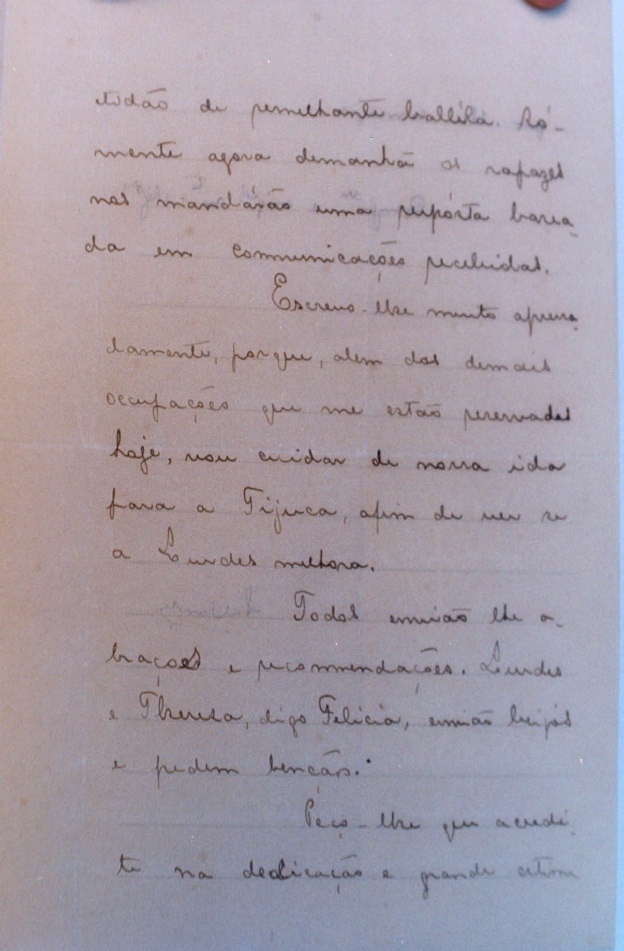 tidão de semelhante ballela. Só-
mente agora demanhã os rapazes
nos mandárão uma resposta basea-
da em communicações recebidas.
Escrevo-lhe muito apressa-
damente, porque, alem das demais
occupações que me estão reservadas
hoje, vou cuidar de nossa ida
para a Tijuca, afim de ver se
a Lourdes melhora.
Todos envião-lhe a-
braços e recommendações. Lourdes
e Thereza, digo Felicia, envião beijos
e pedem benção.
Peço-lhe que acredi-
te na dedicação e grande estima